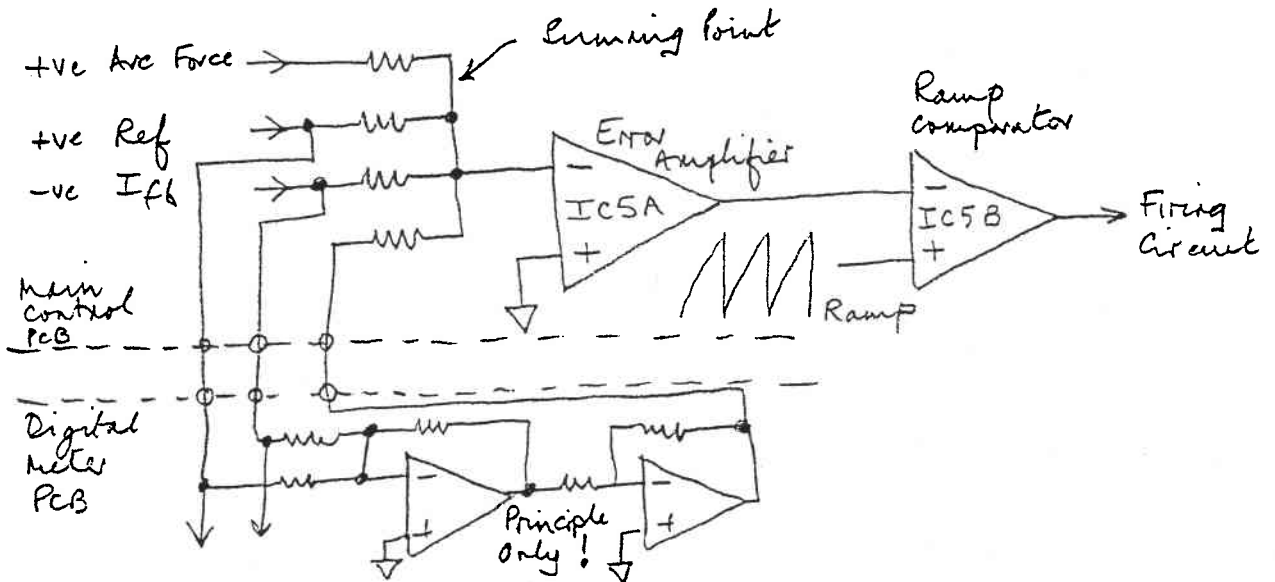 Summing Point
+ve Arc Force
+ve Ref
-ve Ifb
Error
Amplifier
IC5A
-
+
Ramp
Comparator
IC5B
-
+
Firing
Circuit
Ramp
Main
Control
PCB
Digital
Meter
PCB
-
+
Principle
Only!
-
+